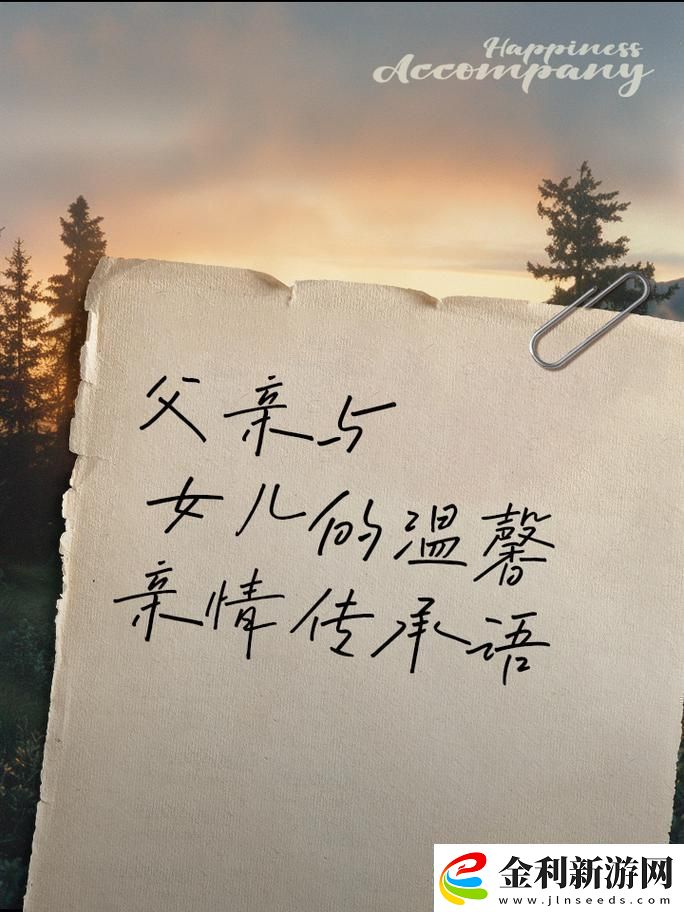 Happiness
Accompany
父亲与
女儿的温馨
亲情传承语
金利新游网
www.jlnseeds.com